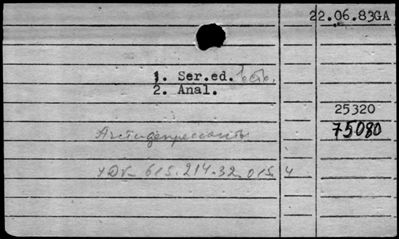 22.06.83GA
1. Ser.ed.
2. Anal.
25320
75080
Антидепрессанты
УДК 615.214.32.015.4